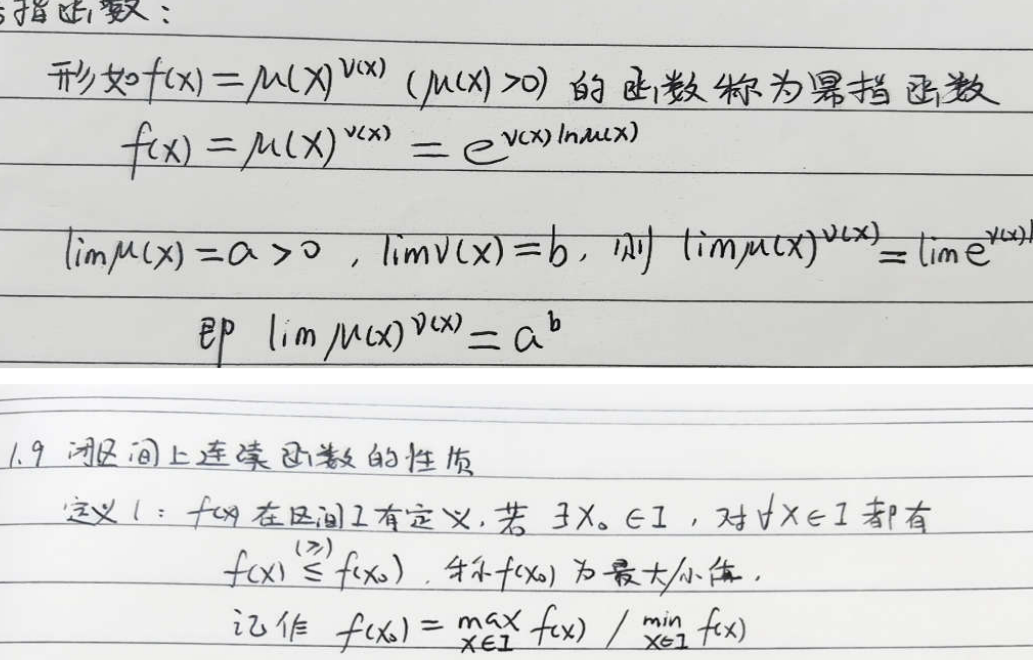 指函数：
形如f(x)=μ(x)^ν(x) (μ(x)>0) 的函数称为幂指函数
f(x)=μ(x)^ν(x)=e^ν(x)lnμ(x)
limμ(x)=a>0，limν(x)=b，则 limμ(x)^ν(x)=lime^ν(x)
即 limμ(x)^ν(x)=a^b
1.9 闭区间上连续函数的性质
定义1：f(x)在区间I有定义，若 ∃x₀∈I，对∀x∈I都有
f(x) ≤(≥) f(x₀)，称f(x₀)为最大/小值，
记作 f(x₀)=max x∈I f(x) / min x∈I f(x)